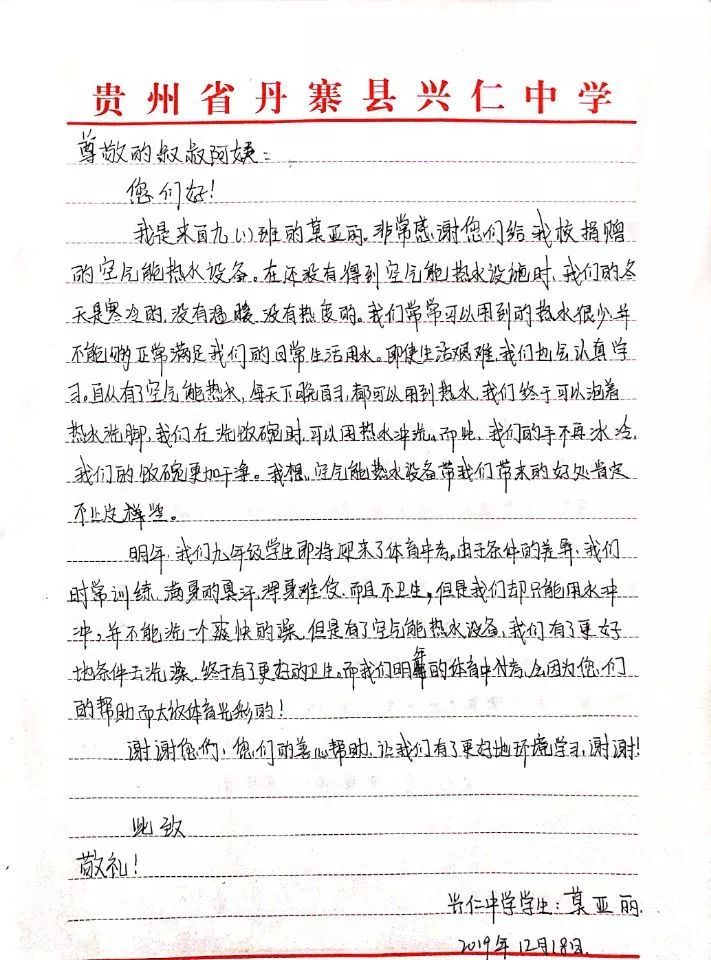 贵州省丹寨县兴仁中学
尊敬的叔叔阿姨:
您们好!
我是来自九(1)班的莫亚丽。非常感谢您们给我校捐赠
的空气能热水设备。在还没有得到空气能热水设施时,我们的冬
天是寒冷的,没有温暖,没有热度的。我们常常可以用到的热水很少,并
不能够正常满足我们的日常生活用水。即使生活艰难,我们也会认真学
习。自从有了空气能热水,每天下晚自习,都可以用到热水,我们终于可以泡着
热水洗脚,我们在洗饭碗时,可以用热水冲洗。而此,我们的手不再冰冷,
我们的饭碗更加干净。我想,空气能热水设备带我们带来的好处肯定
不止这样些。
明年,我们九年级学生即将迎来了体育中考,由于条件的差异,我们
时常训练,满身的臭汗,浑身难受,而且不卫生,但是我们却只能用水冲
冲,并不能洗一个爽快的澡,但是有了空气能热水设备,我们有了更好
地条件去洗澡,终于有了更好的卫生。而我们明年的体育中考,会因为您们
的帮助而大放体育光彩的!
谢谢您们,您们的善心帮助,让我们有了更好地环境学习,谢谢!
此致
敬礼!
兴仁中学学生:莫亚丽.
2019年12月18日.